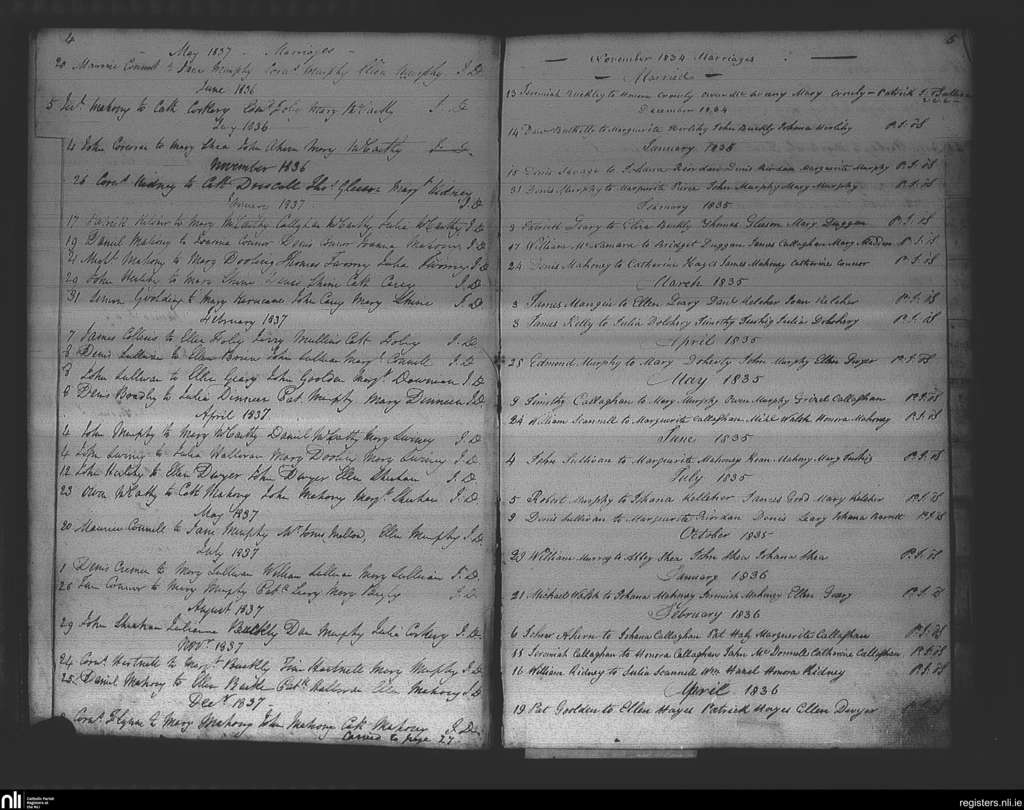 4
May 1837 Marriages
20 Maurice Connell to Jane Murphy Corns. Murphy Ellen Murphy J. D.
June 1836
5 to Cath Corkery Corns. Foley Mary McCarthy J. D.
July 1836
4 John to Mary Shea John Ahern Mary McCarthy J. D.
November 1836
26 Corns. Kidney to Cath Driscoll Thos. Gleeson Margt. Kidney J. D.
January 1837
17 Patrick to Mary McCarthy Callaghan McCarthy Julia McCarthy J. D.
19 Daniel Mahony to Joanna Connor Denis Connor Joanna Mahony J. D.
21 Michl. Mahony to Mary Dooling Thomas Twomy Julia Twomy J. D.
29 John to Mary Shine Shine Cath Carey J. D.
31 Simon Goulding to Mary John Carey Mary Shine J. D.
February 1837
7 James Collins to Ellen Foley Jerry Mullins Cath Foley J. D.
8 Denis Sullivan to Ellen Brien John Sullivan Mary Connell J. D.
8 John Sullivan to Ellen Geary John Goolden Margt. J. D.
8 Denis Bradley to Julia Dinneen Pat. Murphy Mary Dinneen J. D.
April 1837
4 John Murphy to Mary McCarthy Daniel McCarthy Mary J. D.
4 John to Julia Mary Dooley Mary J. D.
12 John to Ellen Dwyer John Dwyer Ellen Sheehan J. D.
23 Owen McCarthy to Cath Mahony John Mahony Margt. Sheehan J. D.
May 1837
20 Maurice Connell to Jane Murphy Mr. Ellen Murphy J. D.
July 1837
1 Denis Cremin to Mary Sullivan William Sullivan Mary Sullivan J. D.
26 Connor to Mary Murphy Patk. Leary Mary J. D.
August 1837
29 John Sheehan Julianna Buckley Dan Murphy Julia Corkery J. D.
Novr. 1837
24 Corns. Hartnell to Margt. Buckly Tim Hartnell Mary Murphy J. D.
25 Daniel Mahony to Ellen Patk. Ellen Mahony J. D.
Decr. 1837
Corns. Flynn to Mary Mahony John Mahony Cath Mahony J. D.
Carried to page 27
5
November 1834 Marriages
Married
13 Jeremiah Buckley to Honora Crowly Mary Crowly Patrick J. O'Sullivan
December 1834
14 Danl. to Marguerite Herlihy John Buckly Johana Herlihy P. J. OS
January 1835
15 Denis Savage to Johana Riordan Denis Riordan Marguerite Murphy P. J. OS
31 Denis Murphy to Marguerite Pierce John Murphy Mary Murphy P. J. OS
February 1835
3 Patrick Leary to Eliza Buckly Thomas Gleeson Mary Duggan P. J. OS
17 William McNamara to Bridget Duggan James Callaghan Mary Madden P. J. OS
24 Denis Mahoney to Catherine Hayes James Mahoney Catherine Connor P. J. OS
March 1835
3 James Mangin to Ellen Leary Danl. Kelcher Joan Kelcher P. J. OS
3 James Kelly to Julia Dolohery Timothy Tuohig Julia Dolohery P. J. OS
April 1835
28 Edmond Murphy to Mary Doherty John Murphy Ellen Dwyer P. J. OS
May 1835
9 Timothy Callaghan to Mary Murphy Owen Murphy Callaghan P. J. OS
24 William Scannell to Marguerite Callaghan Michl. Walsh Honora Mahoney P. J. OS
June 1835
4 John Sullivan to Marguerite Mahoney Kean Mahony Mary Tuohig P. J. OS
July 1835
5 Robert Murphy to Johana Kelleher James Good Mary Kelcher P. J. OS
9 Denis Sullivan to Marguerite Riordan Denis Leary Johana P. J. OS
October 1835
29 William Murray to Abby Shea John Shea Johana Shea P. J. OS
January 1836
21 Michael Walsh to Johana Mahoney Jeremiah Mahoney Ellen Geary P. J. OS
February 1836
6 Ahern to Johana Callaghan Pat Haly Marguerite Callaghan P. J. OS
15 Jeremiah Callaghan to Honora Callaghan John McDonnell Catherine Callaghan P. J. OS
16 William Kidney to Julia Scannell Wm Honora Kidney P. J. OS
April 1836
19 Pat Goolden to Ellen Hayes Patrick Hayes Ellen Dwyer P. J. OS
nli
Catholic Parish
Registers at
the NLI
registers.nli.ie